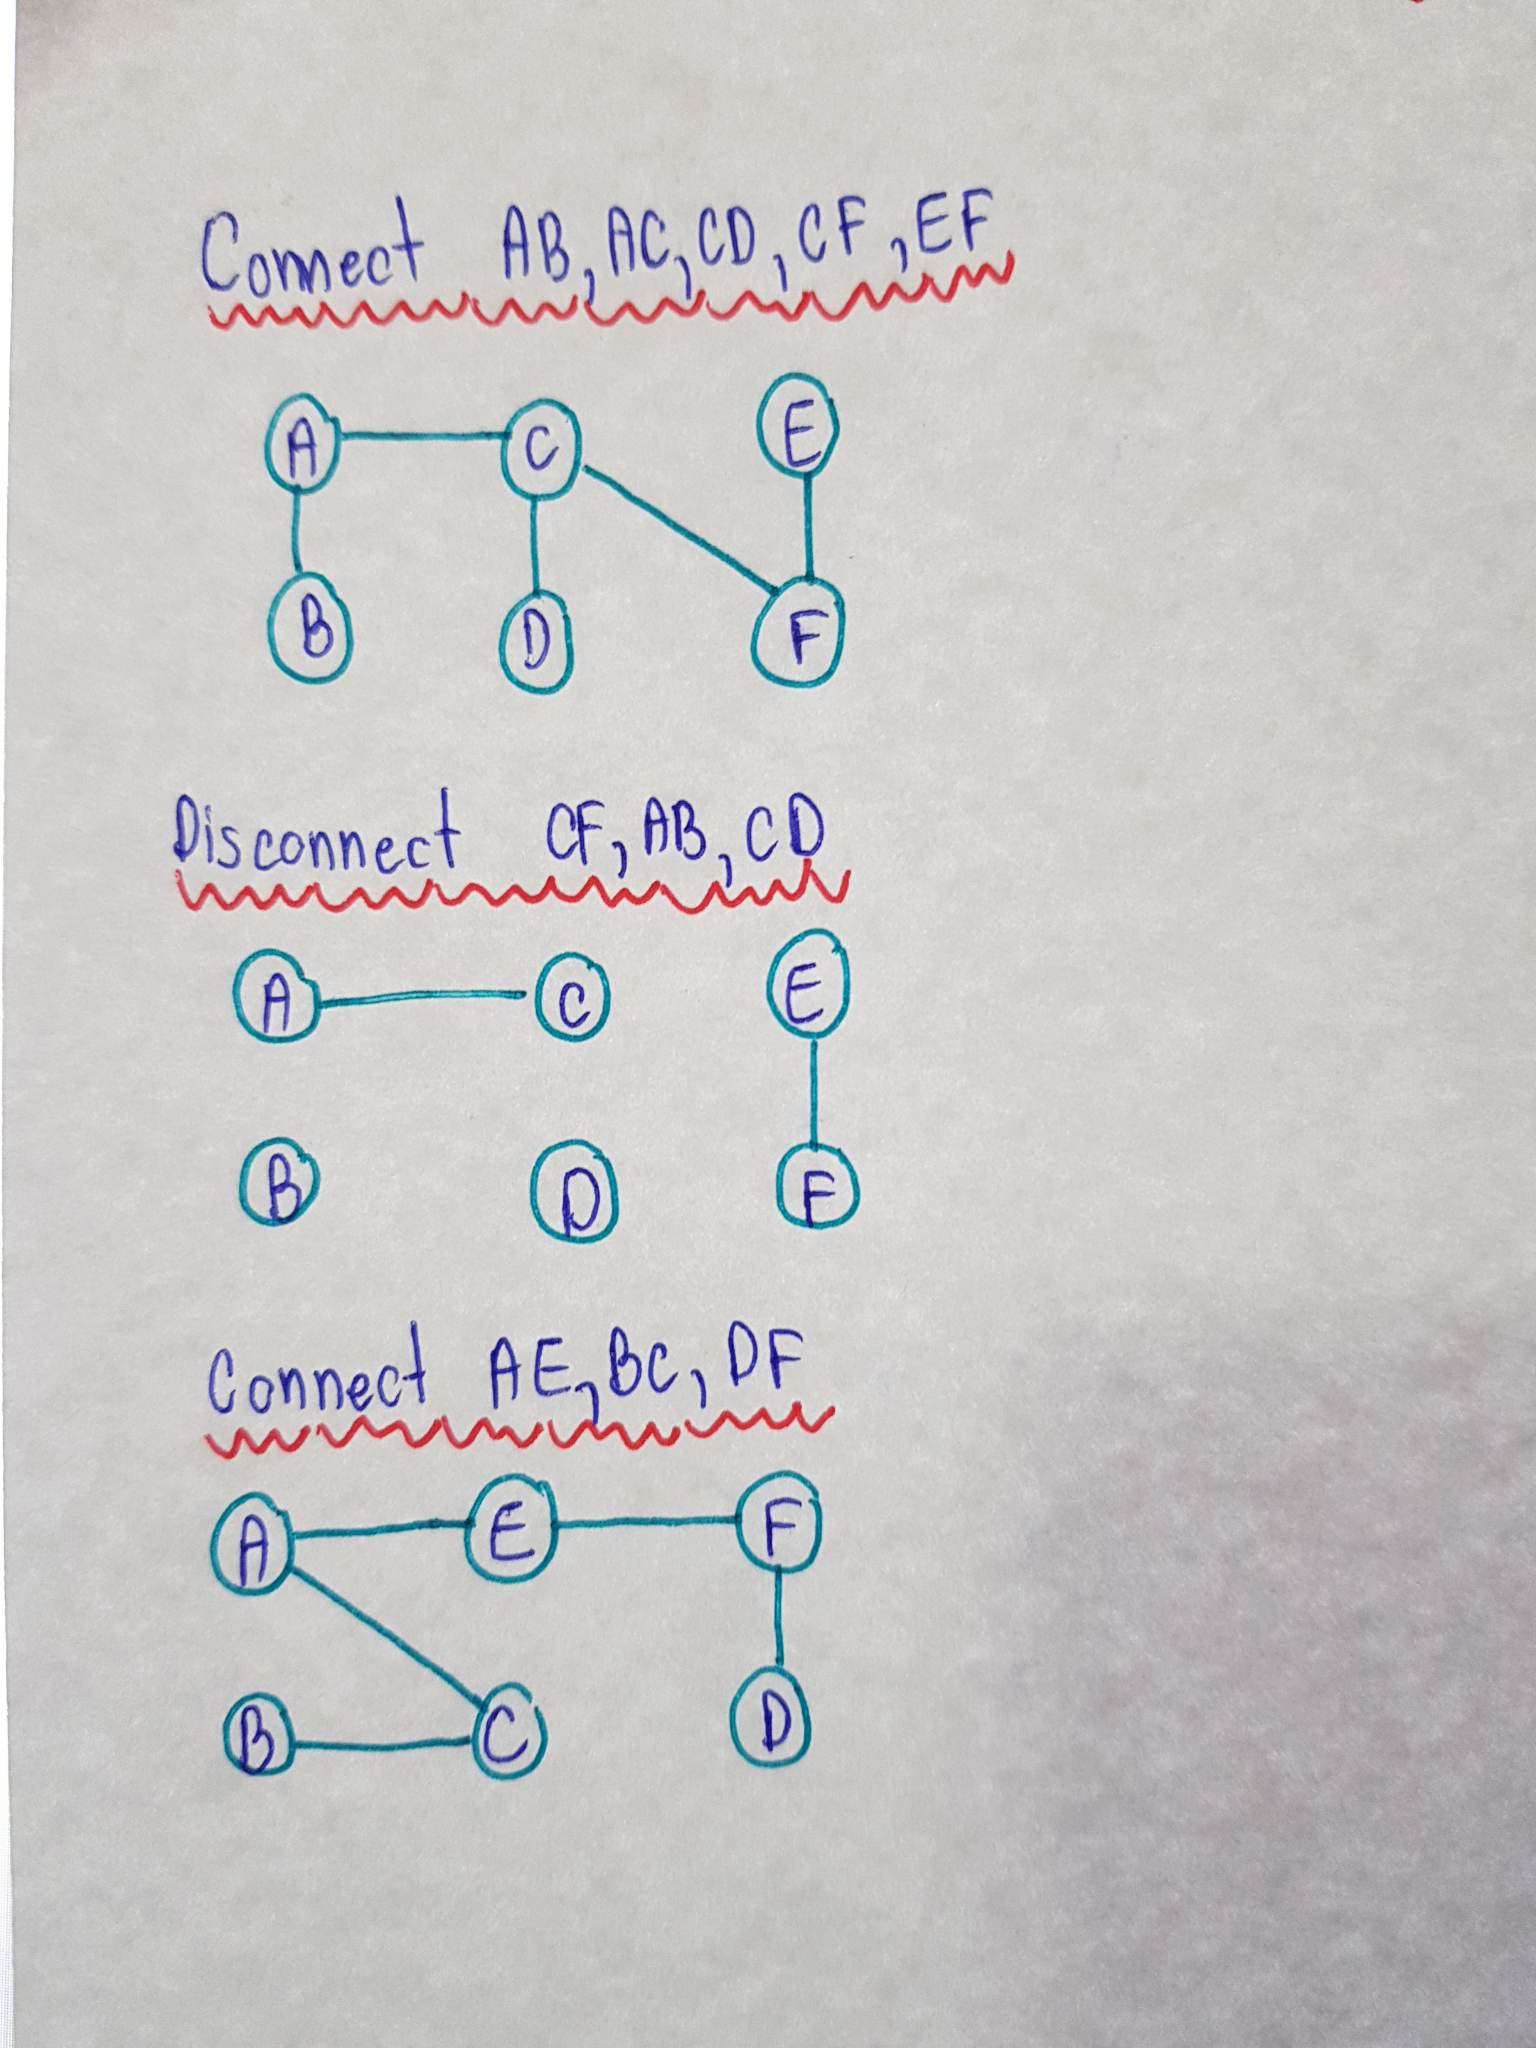 Connect AB, AC, CD, CF, EF
A C E
B D F
Disconnect CF, AB, CD
A C E
B D F
Connect AE, BC, DF
A E F
B C D